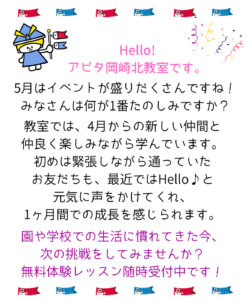 Hello!
アピタ岡崎北教室です。
5月はイベントが盛りだくさんですね！
みなさんは何が1番たのしみですか？
教室では、4月からの新しい仲間と
仲良く楽しみながら学んでいます。
初めは緊張しながら通っていた
お友だちも、最近ではHello♪と
元気に声をかけてくれ、
1ヶ月間での成長を感じられます。
園や学校での生活に慣れてきた今、
次の挑戦をしてみませんか？
無料体験レッスン随時受付中です！